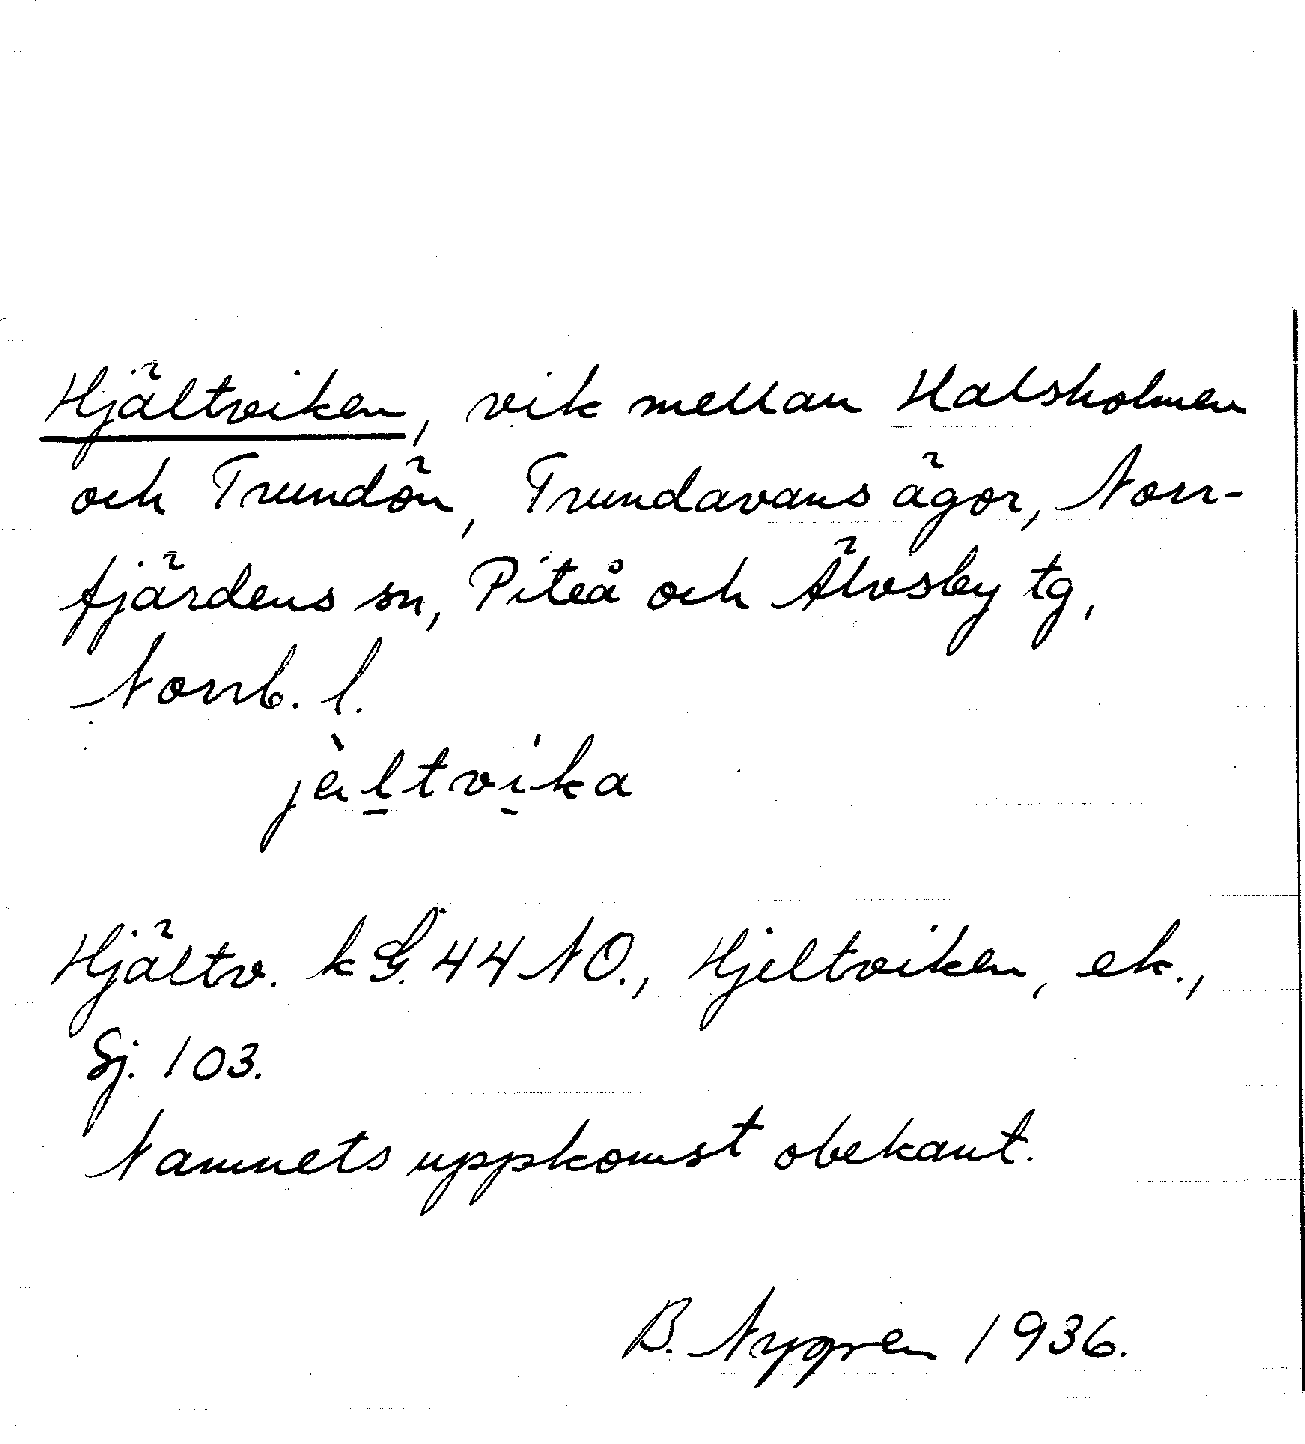 Hjältviken, vik mellan Halsholmen
och Trundön, Trundavans ägor, Norr-
fjärdens sn, Piteå och Älvsby tg,
Norrb. l.
jèltvika
Hjältv. k G. 44 NO., Hjeltviken, ek.,
Sj. 103.
Namnets uppkomst obekant.
B. Nygren 1936.